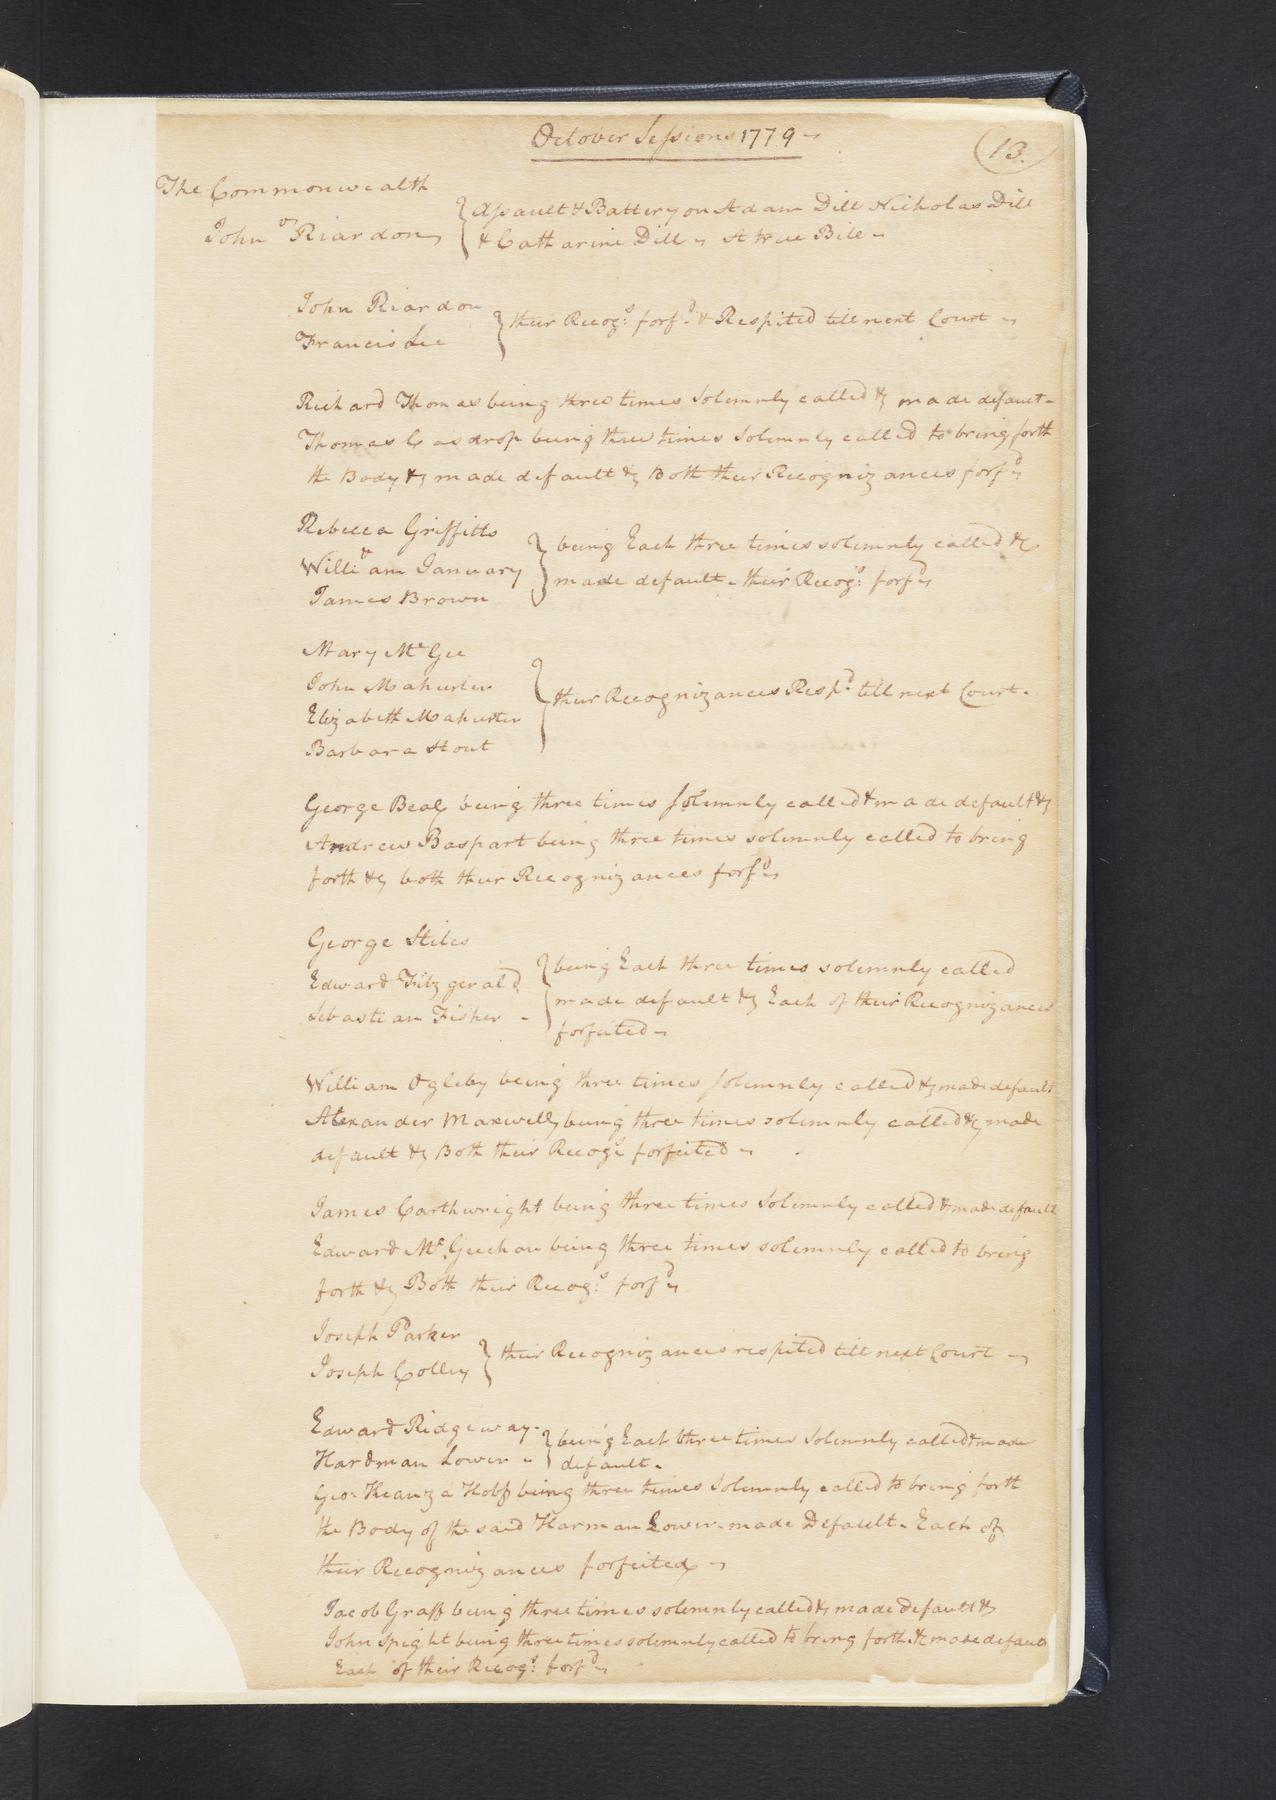 October Sessions 1779
(13.)
The Commonwealth
vs
John Riardon
Assault & Battery on Adam Dill Nicholas Dill
& Catharine Dill A true Bill
John Riardon
Francis Lee
their Recogs. forfd. & Respited till next Court
Richard Thomas being three times Solemnly called &c made default
Thomas Casdrop being three times Solemnly called to bring forth
the Body &c made default &c Both their Recognizances forfd
Rebecca Griffitts
William January
James Brown
being Each three times solemnly called &c
made default their Recogs. forfd
Mary McGee
John Mahurter
Elizabeth Mahurter
Barbara Stout
their Recognizances Respd. till next Court
George Beal being three times solemnly called & made default &c
Andrew Baspart being three times solemnly called to bring
forth &c both their Recognizances forfd
George Stiles
Edward Fitzgerald
Sebastian Fisher
being Each three times solemnly called
made default &c Each of their Recognizances
forfeited
William Ogleby being three times solemnly called &c made default
Alexander Maxwell being three times solemnly called &c made
default &c Both their Recogs forfeited
James Carthwright being three times Solemnly called & made default
Edward Mc Geechan being three times solemnly called to bring
forth &c Both their Recogs. forfd
Joseph Parker
Joseph Colley
their Recognizances respited till next Court
Edward Ridgeway
Hardman Lower
being Each three times Solemnly called & made
default
Geo: being three times Solemnly called to bring forth
the Body of the said Harman Lower made Default. Each of
their Recognizances forfeited
Jacob Graff being three times solemnly called &c made Default &c
John Spight being three times solemnly called to bring forth &c made default
Each of their Recogs. forfd